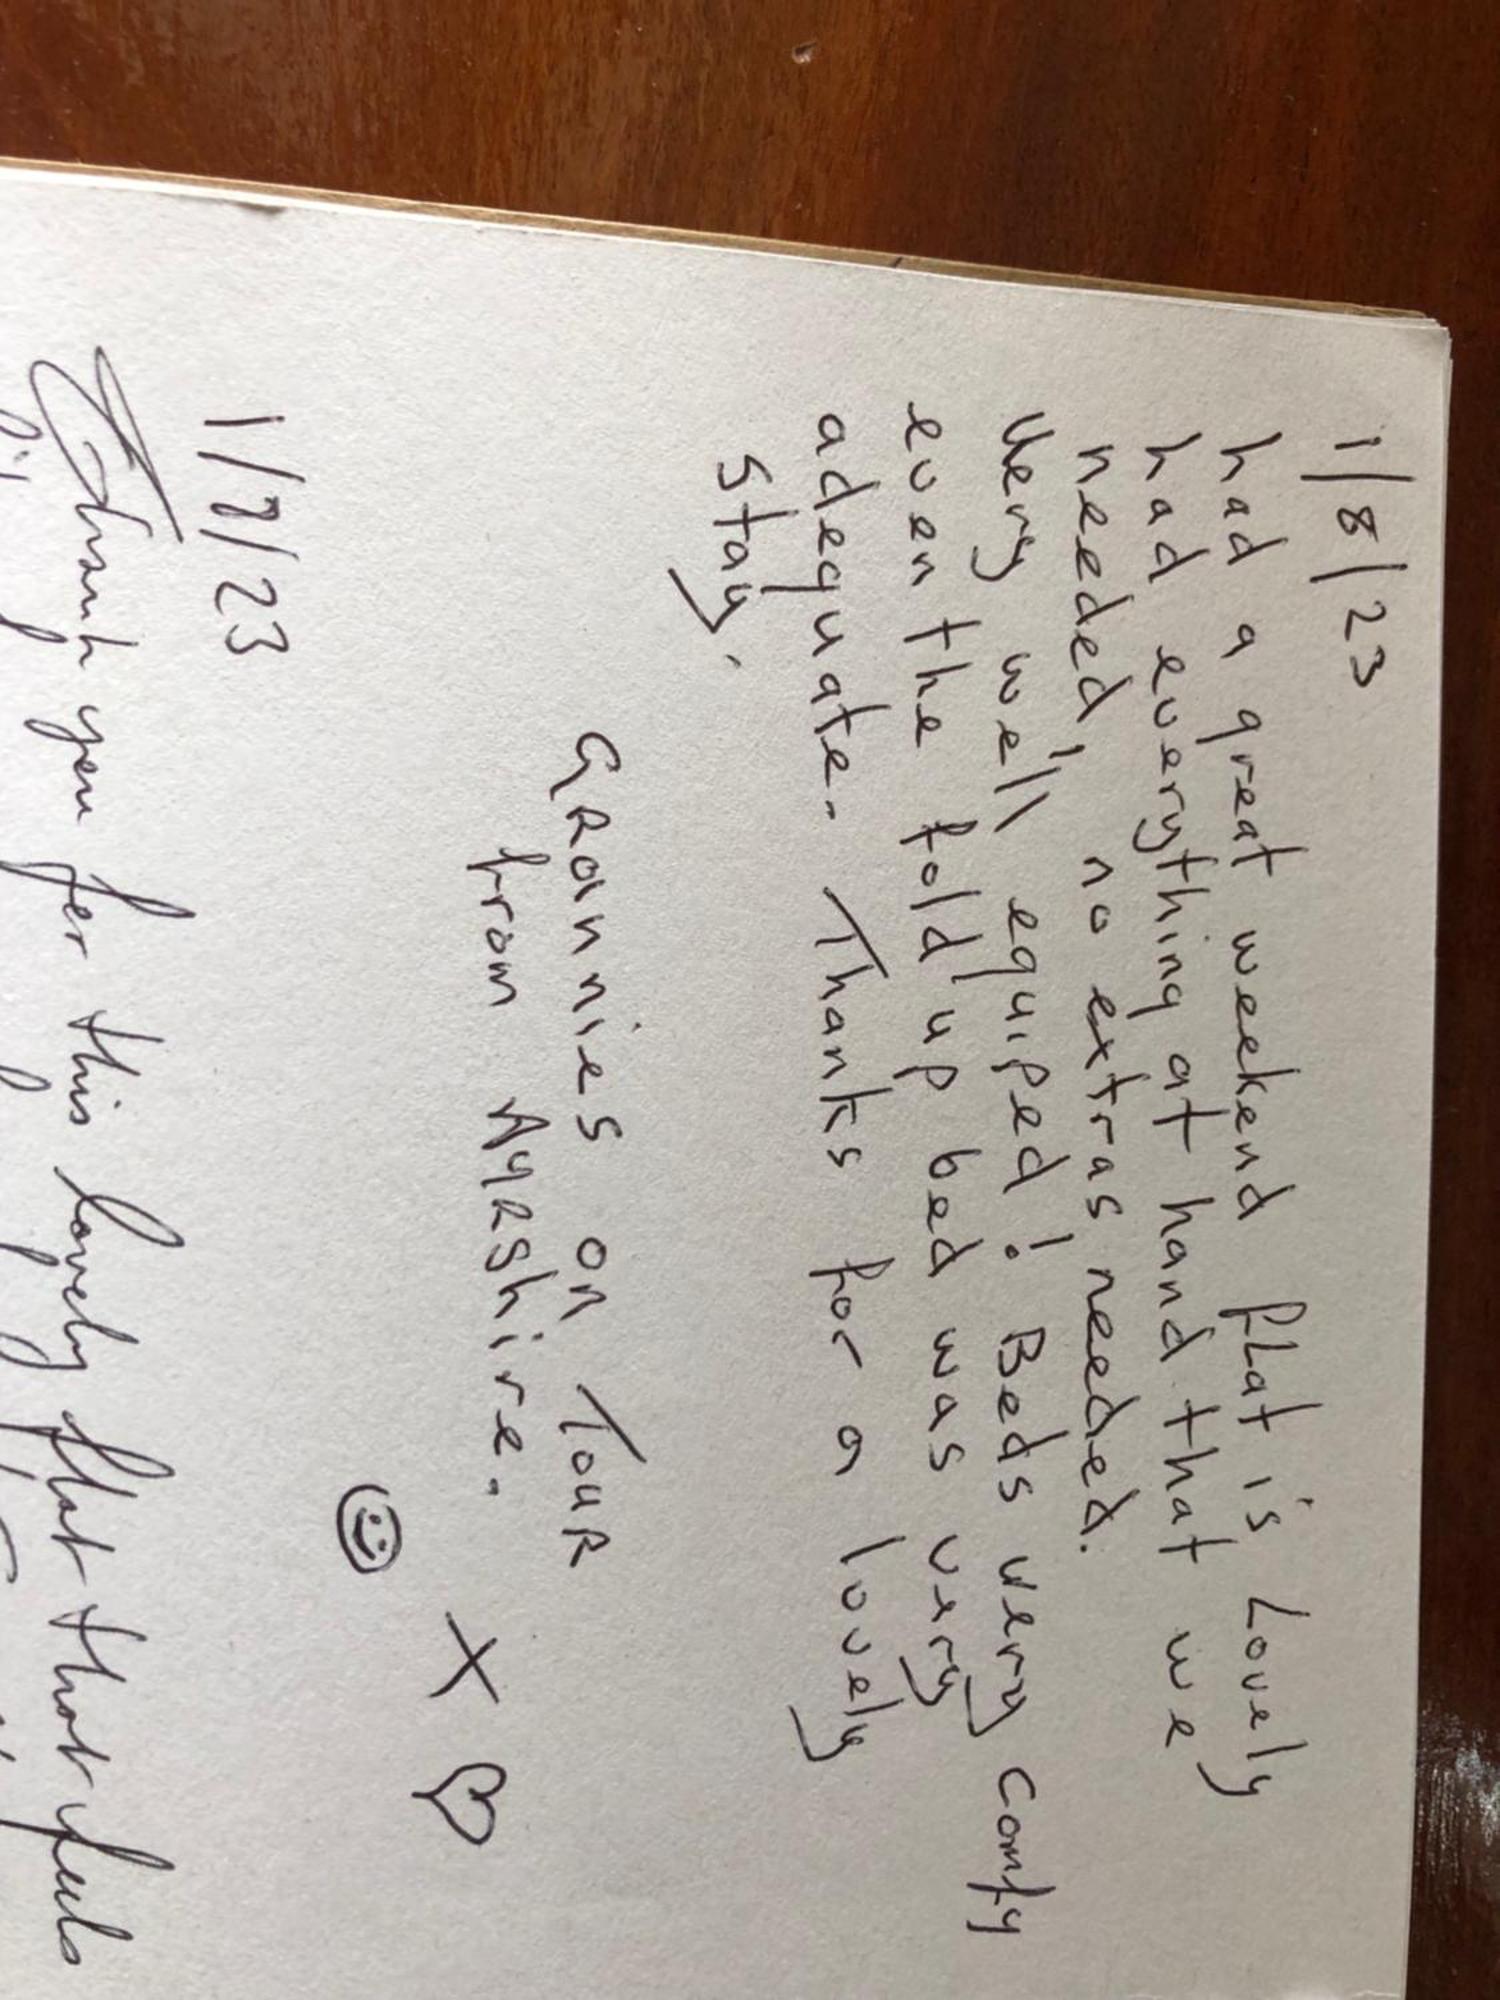 1/8/23
had a great weekend flat is Lovely
had everything at hand that we
needed, no extras needed.
Very well equiped! Beds very comfy
even the fold up bed was very
adequate. Thanks for a lovely
stay.
GRannies on TouR
from AyRshire. X ♡
☺
1/8/23
Thank you for this lovely flat that feels